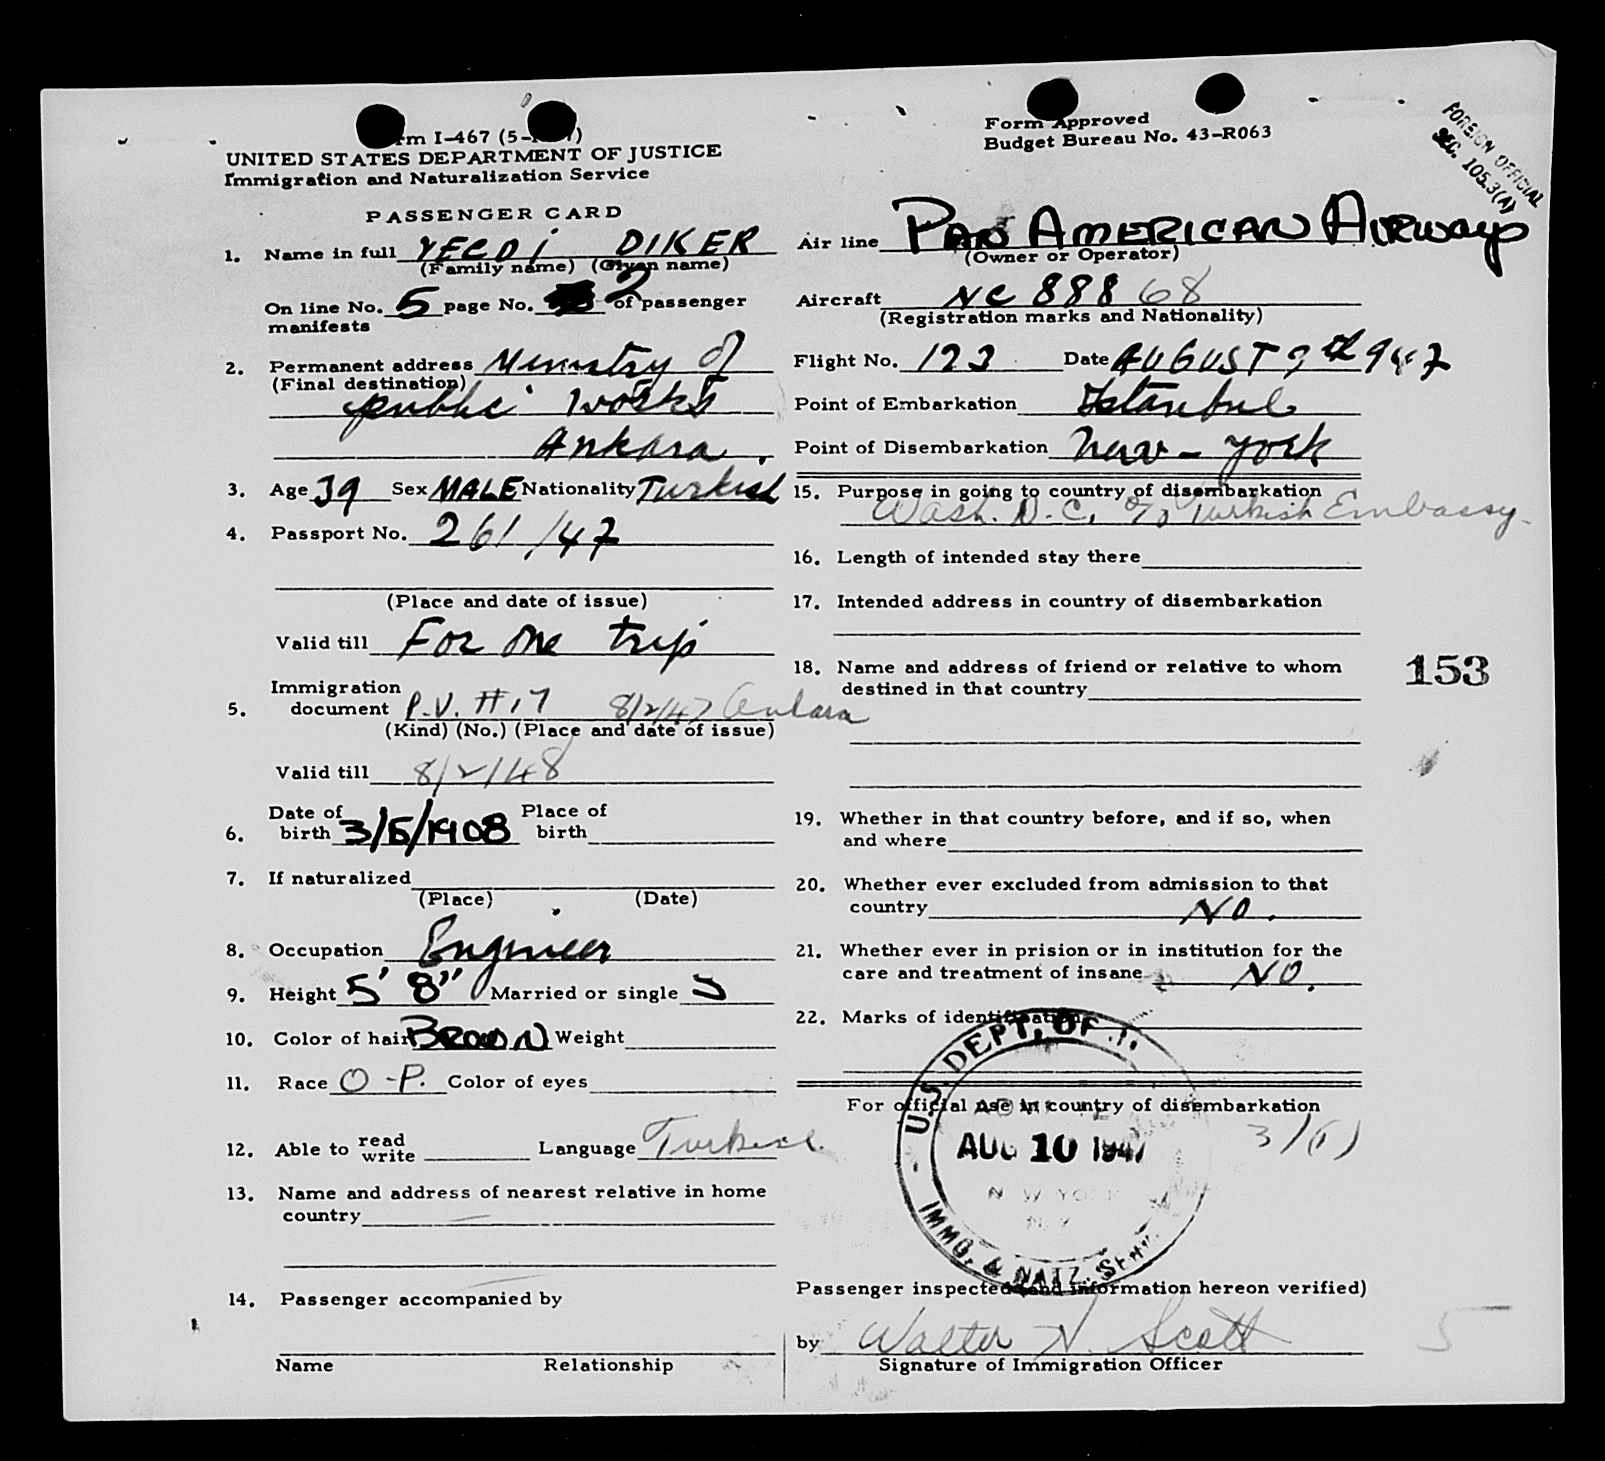 rm I-467 (5-
UNITED STATES DEPARTMENT OF JUSTICE
Immigration and Naturalization Service
Form Approved
Budget Bureau No. 43-R063
FOREIGN OFFICIAL
SEC. 105.3(A)
PASSENGER CARD
1. Name in full YECDI DIKER
(Family name) (Given name)
On line No. 5 page No. 2 of passenger
manifests
2. Permanent address Ministry of
(Final destination)
public works
Ankara.
3. Age 39 Sex MALE Nationality Turkish
4. Passport No. 261/47
(Place and date of issue)
Valid till For one trip
5. Immigration
document P.V. #17 8/2/47 Ankara
(Kind) (No.) (Place and date of issue)
Valid till 8/2/48
6. Date of
birth 3/5/1908 Place of
birth
7. If naturalized
(Place) (Date)
8. Occupation Engineer
9. Height 5' 8" Married or single S
10. Color of hair BROWN Weight
11. Race O-P. Color of eyes
12. Able to read
write Language Turkish.
13. Name and address of nearest relative in home
country
14. Passenger accompanied by
Name Relationship
Air line PAN AMERICAN AIRWAYS
(Owner or Operator)
Aircraft NC 88868
(Registration marks and Nationality)
Flight No. 123 Date AUGUST 9th 947
Point of Embarkation Istanbul
Point of Disembarkation New-york
15. Purpose in going to country of disembarkation
Wash. D.C. c/o Turkish Embassy.
16. Length of intended stay there
17. Intended address in country of disembarkation
18. Name and address of friend or relative to whom
destined in that country
153
19. Whether in that country before, and if so, when
and where
20. Whether ever excluded from admission to that
country NO.
21. Whether ever in prision or in institution for the
care and treatment of insane NO.
22. Marks of identification
For official use in country of disembarkation
U.S. DEPT. OF J.
AUG 10 1947
NEW YORK
N.Y.
IMMG. & NATZ. SERV.
3/(1)
Passenger inspected and information hereon verified)
by Walter N. Scott
Signature of Immigration Officer
5